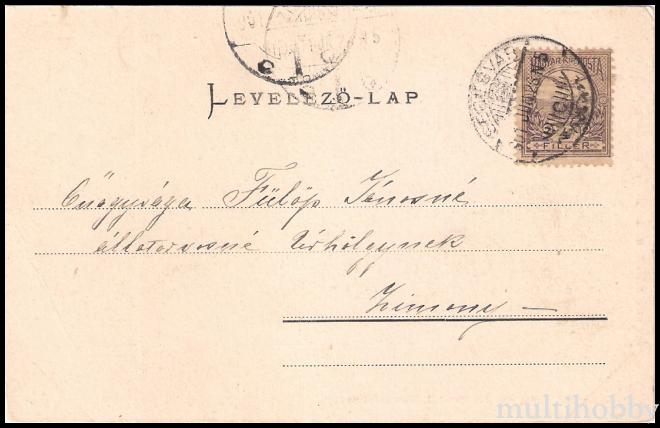 LEVELEZŐ-LAP
MAGYAR KIR. POSTA
FILLER
Őnagysága Fülöp Jánosné
állatorvosné Úrhölgynek
Zimony
multihobby